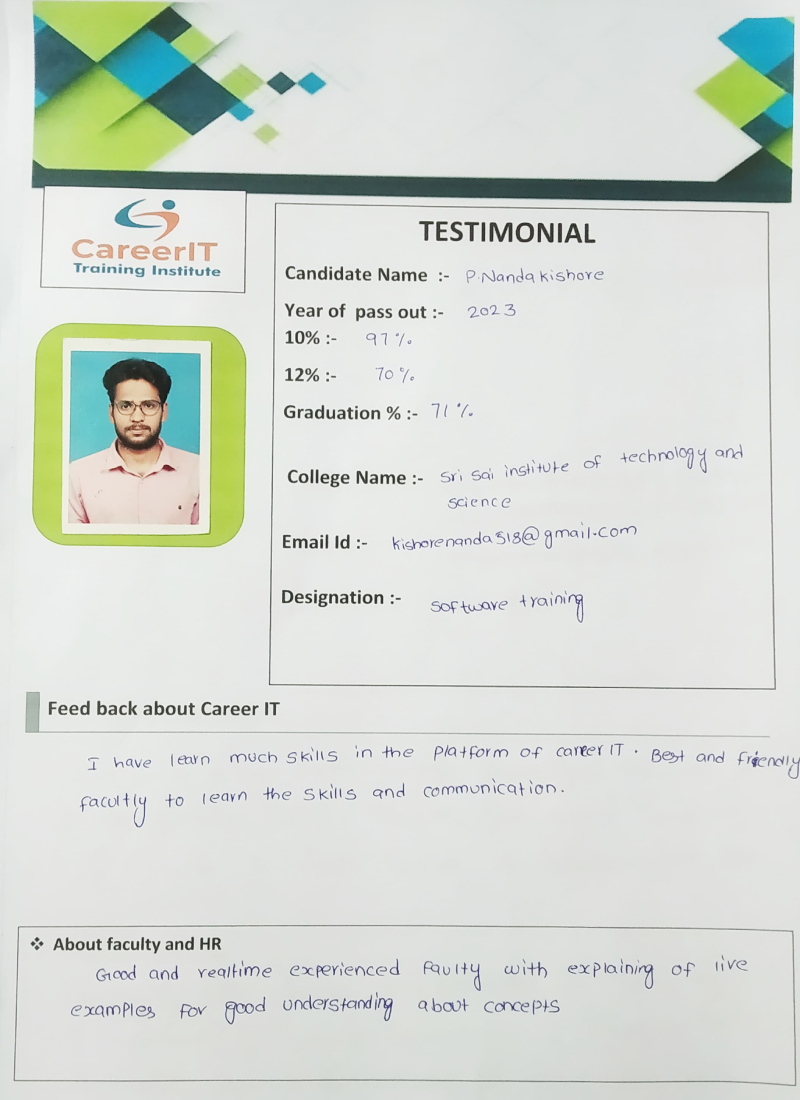 CareerIT
Training Institute
TESTIMONIAL
Candidate Name :- P. Nanda kishore
Year of pass out :- 2023
10% :- 97 %
12% :- 70 %
Graduation % :- 71 %
College Name :- Sri Sai institute of technology and
science
Email Id :- kishorenanda518@gmail.com
Designation :- Software training
Feed back about Career IT
I have learn much skills in the platform of career IT . Best and friendly
facultly to learn the skills and communication.
❖ About faculty and HR
Good and realtime experienced faulty with explaining of live
examples for good understanding about concepts